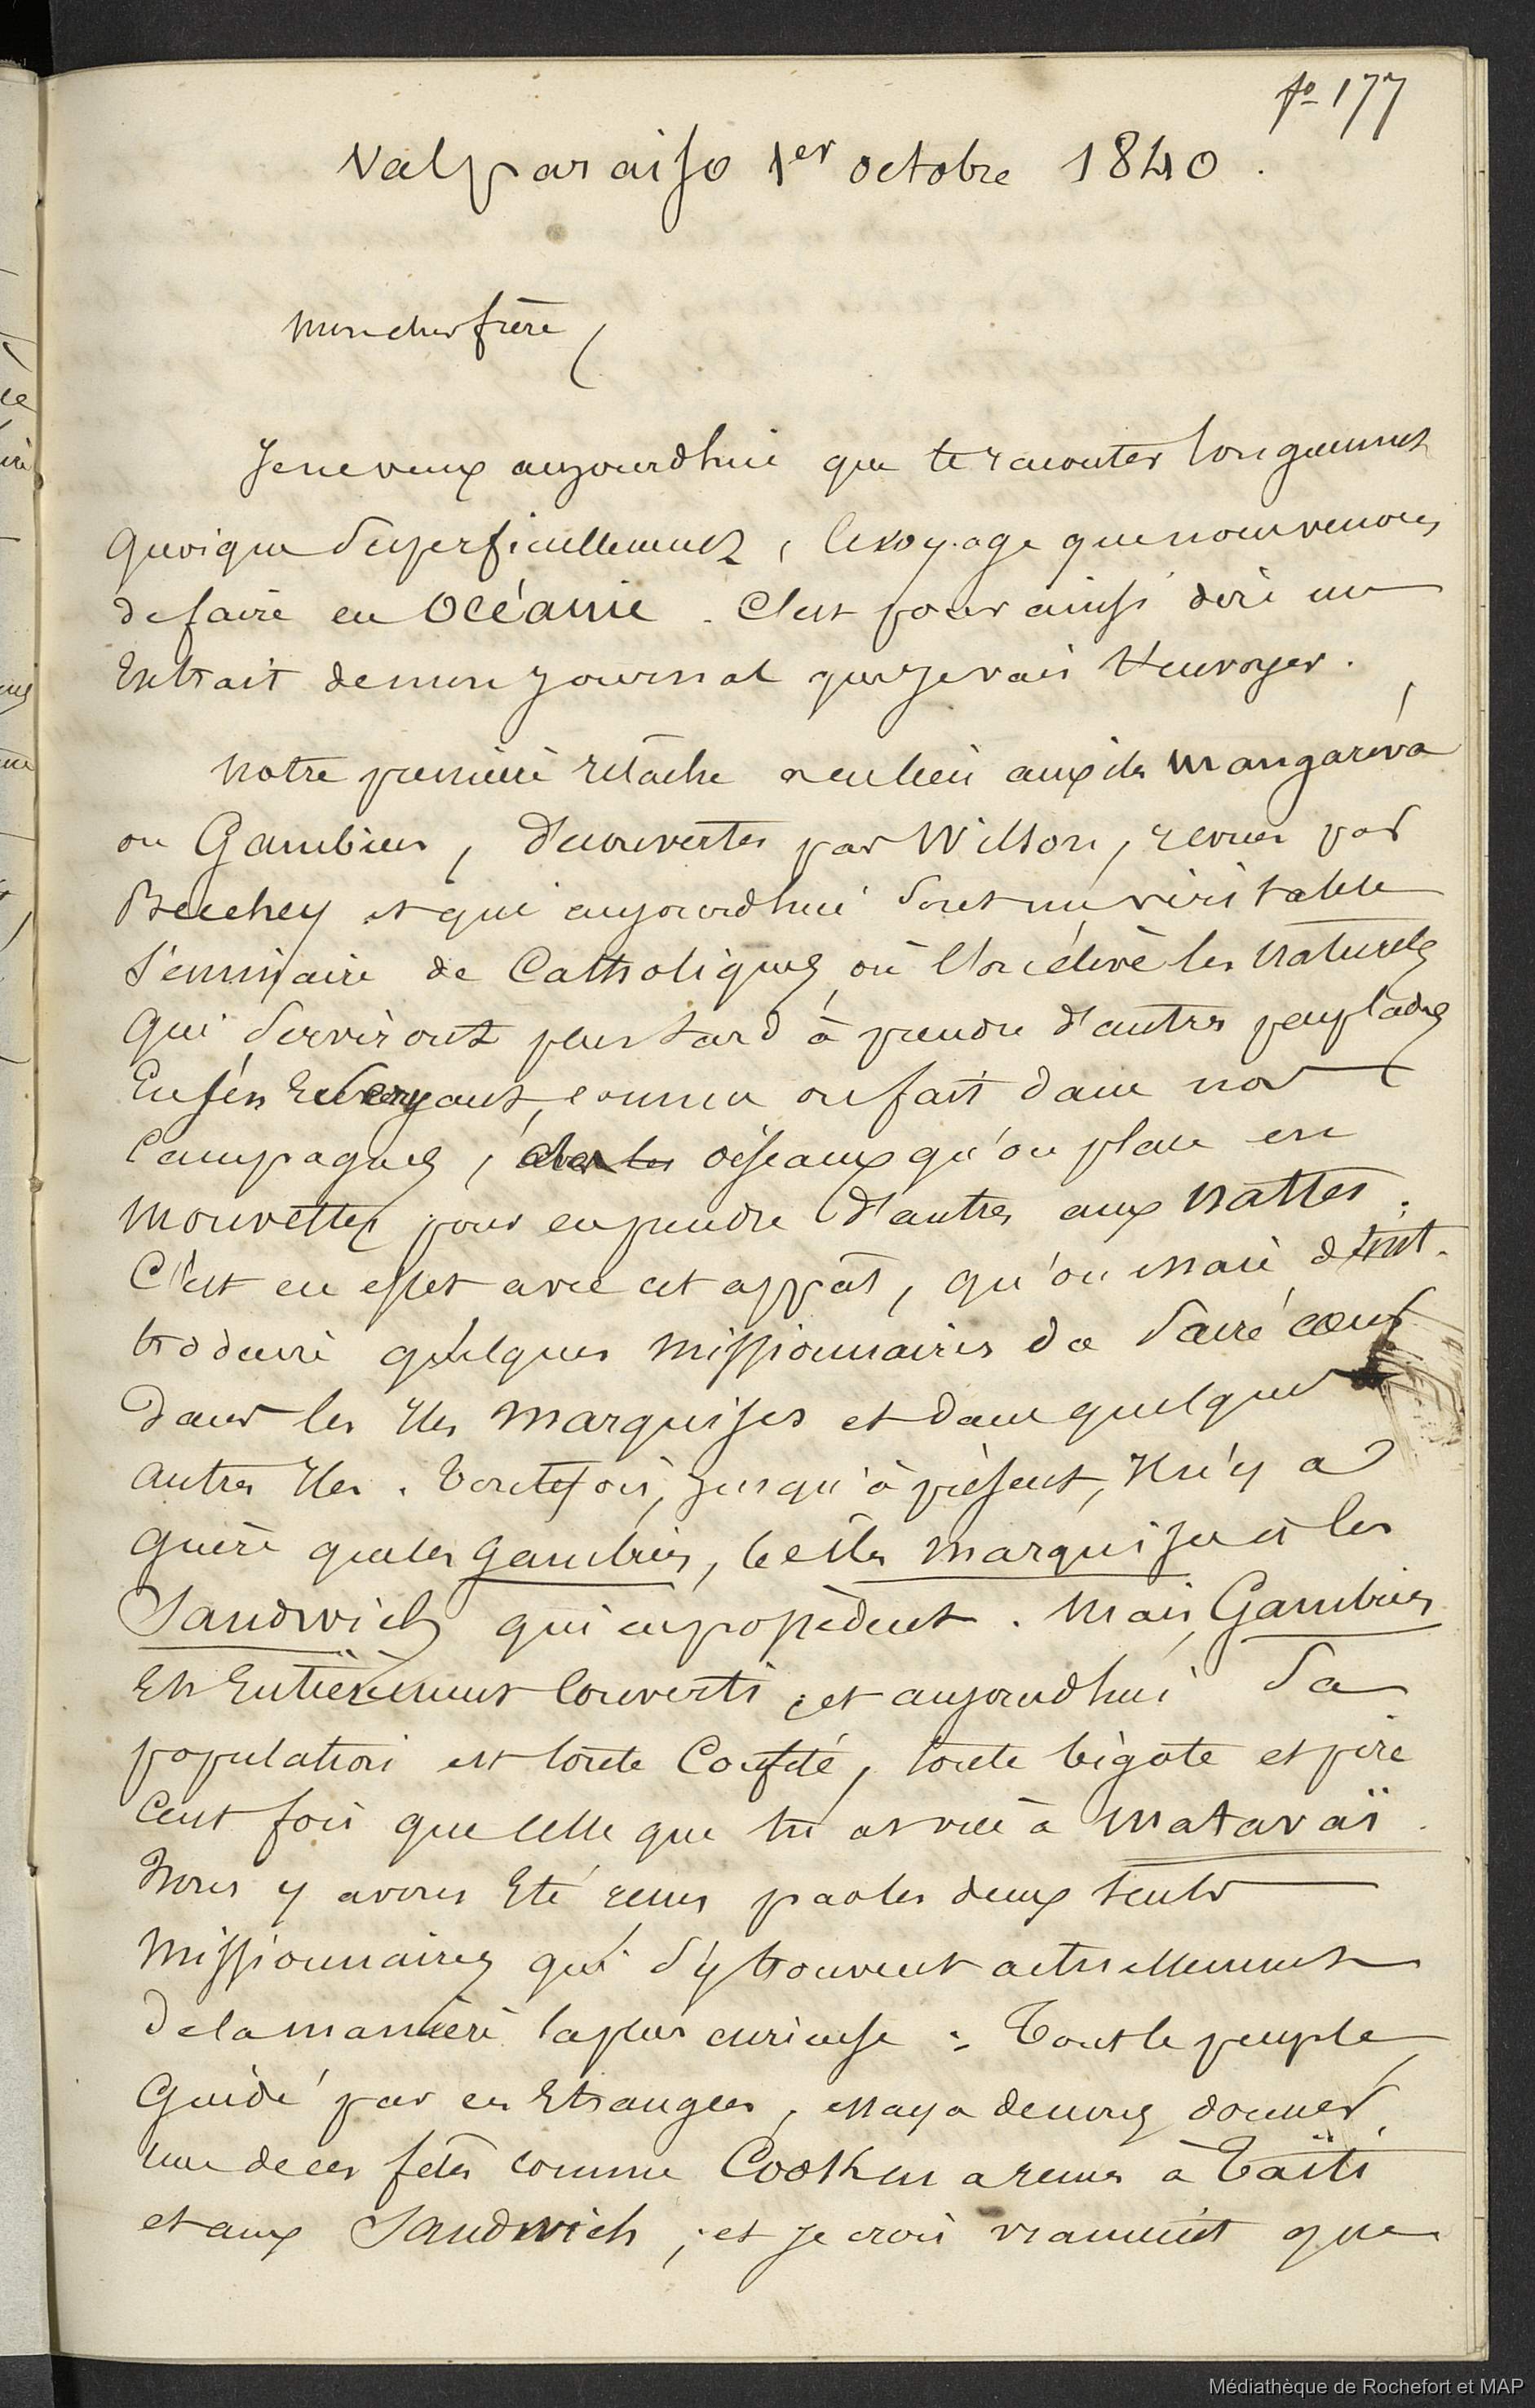 fo 177
Valparaiso 1er octobre 1840.
Mon cher frère,
Je ne veux aujourdhui que te raconter longuement
quoique superficiellement, le voyage que nous venons
de faire en Océanie. C'est pour ainsi dire un
Extrait de mon journal que je vais t'envoyer.
Notre première relâche a eu lieu aux iles Mangaréva
ou Gambier, découvertes par Wilson, revues par
Beechey et qui aujourdhui sont un véritable
séminaire de Catholiques, où l'on élève les naturels
qui serviront plus tard à prendre d'autres peuplades
comme on fait dans nos
Campagnes, oiseaux qu'on place en
mouvettes pour en prendre d'autres aux nattes.
C'est en effet avec cet appât, qu'on essaie d'int-
troduire quelques missionnaires du Sacré cœur
dans les Iles Marquises et dans quelques
autres Iles. Toutefois, jusqu'à présent, Il n'y a
guère que les Gambier, les Marquises et les
Sandwich qui en possèdent. Mais, Gambier
Est Entièrement Converti, et aujourdhui sa
population est toute bigote et pire
cent fois que celle que tu as vue à Matavaï.
Nous y avons Eté reçus par les deux seuls
missionnaires qui s'y trouvent actuellement
de la manière la plus curieuse : Tout le peuple,
Guidé par ces Etrangers, essaya de nous donner
une de ces fêtes comme Cook en a reçues à Taïti
et aux Sandwich ; et je crois vraiment que
Médiathèque de Rochefort et MAP